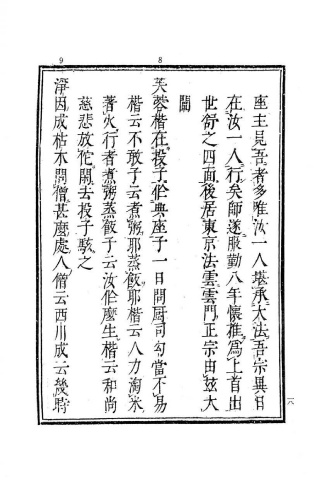 9
8
座主見吾者多唯汝一人堪承大法吾宗異日
在汝一人行矣師遂服勤八年懷樵爲上首出
世舒之四面後居東京法雲雲門正宗由茲大
闡
芙蓉楷在投子作典座子一日問厨司勾當不易
楷云不敢子云煮粥耶蒸飯耶楷云人力淘米
著火行者煮粥蒸飯子云汝作麼生楷云和尚
慈悲放佗閑去投子駭之
淨因成枯木問僧甚麼處人僧云西川成云幾時
一八